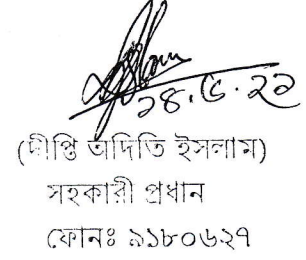 ১৪.৫.২২
(দীপ্তি অদিতি ইসলাম)
সহকারী প্রধান
ফোনঃ ৯১৮০৬২৭